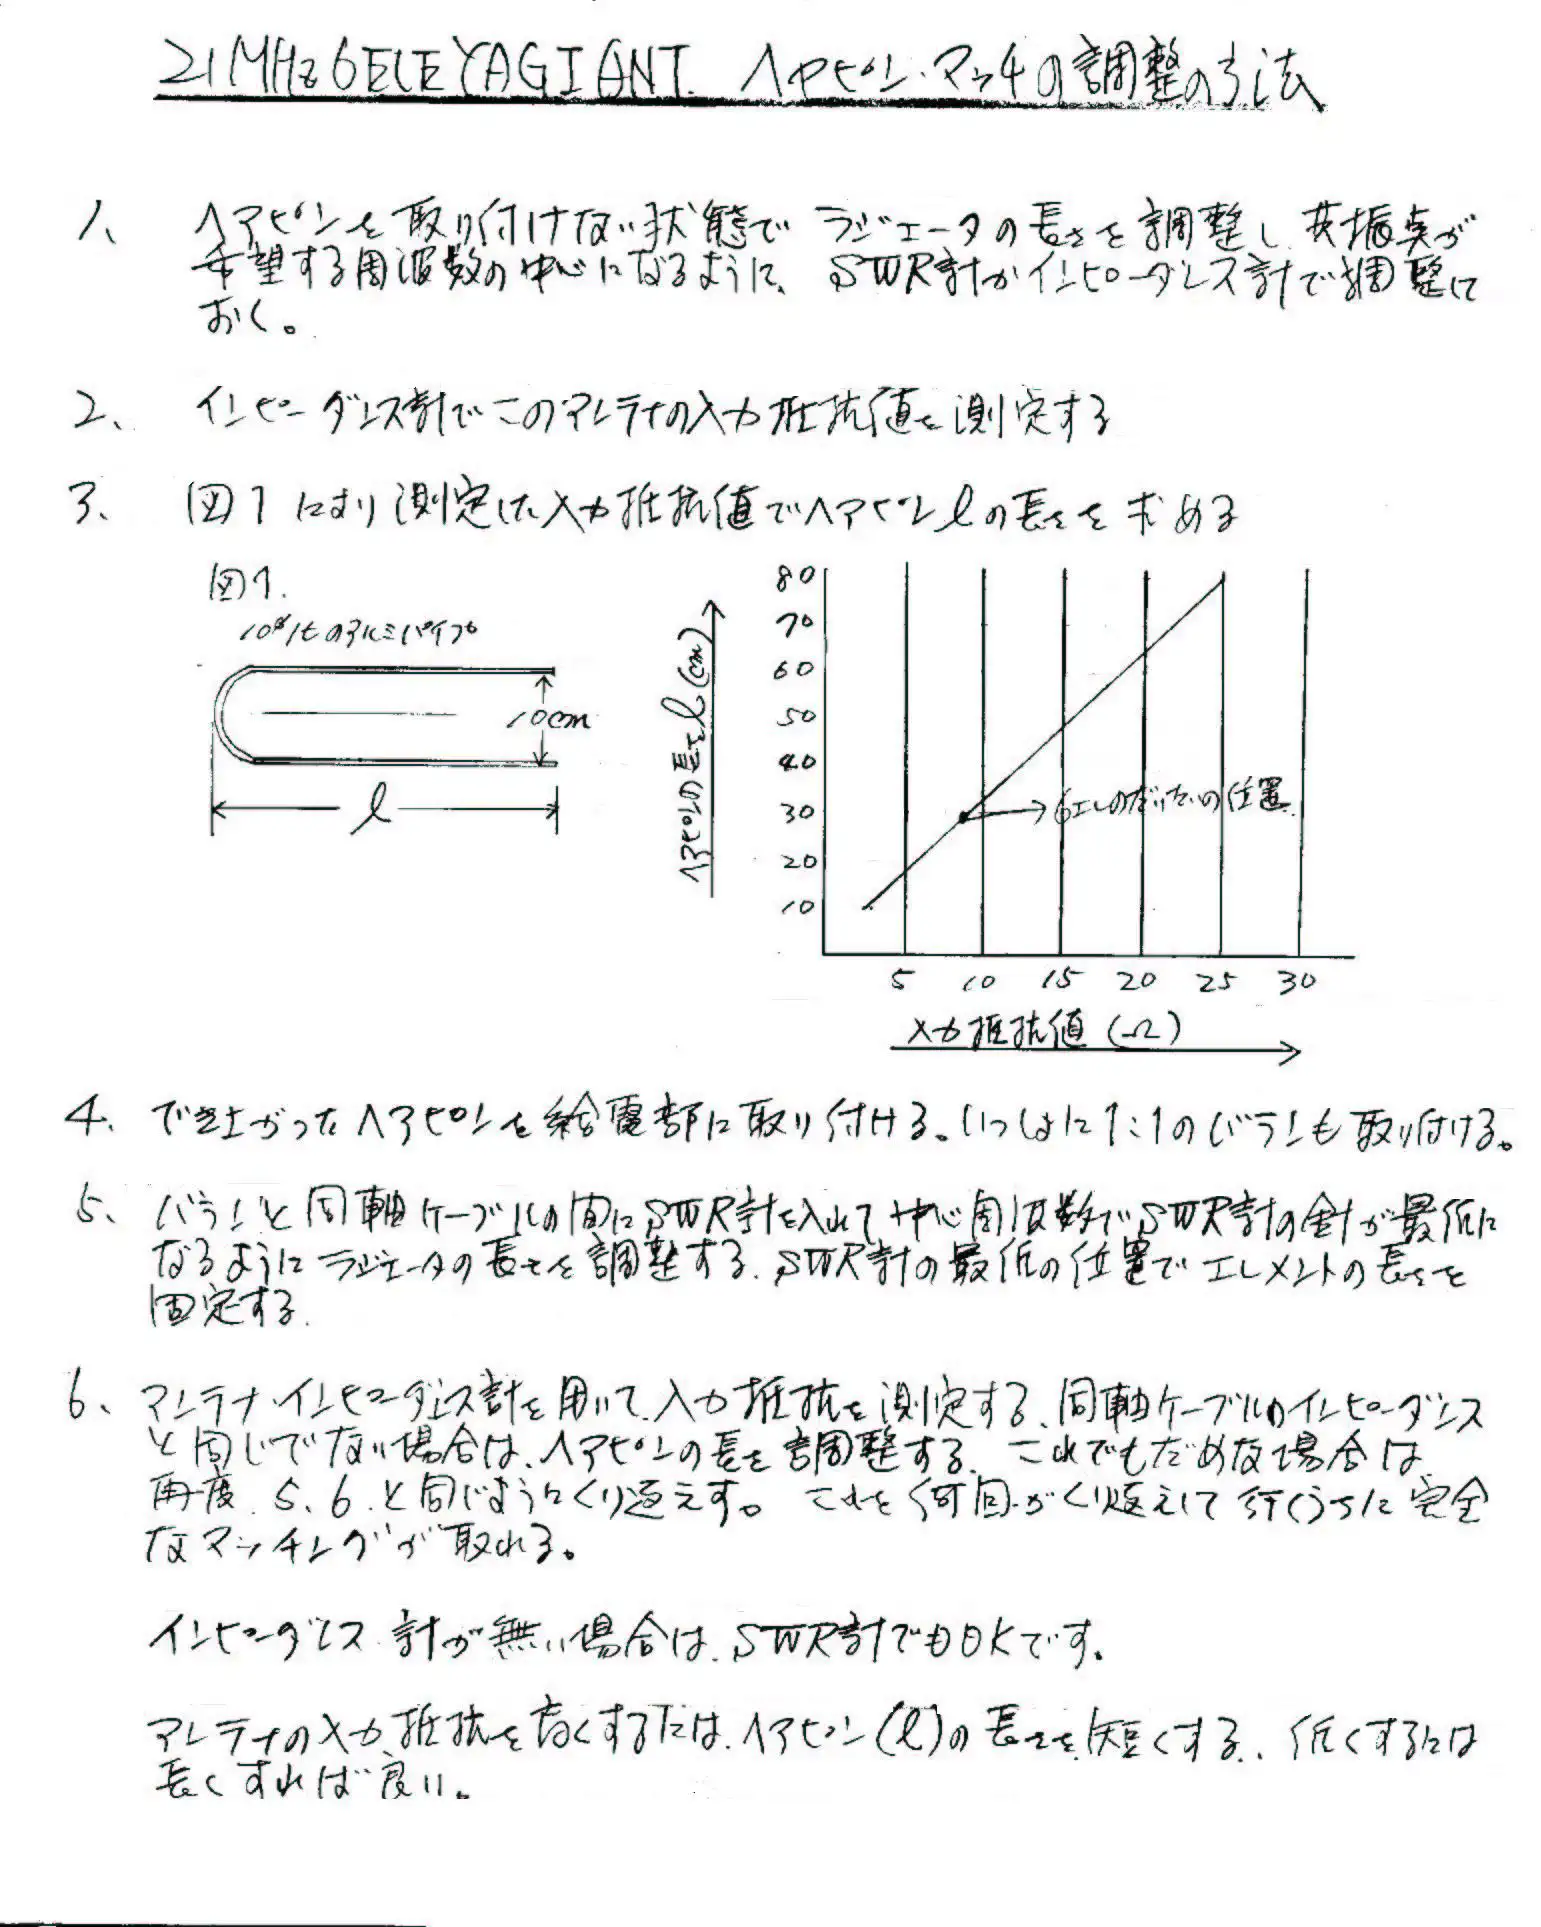 21MHz 6ELE YAGI ANT. ヘヤピン・マッチの調整の方法
1、 ヘアピンを取り付けない状態で ラジエータの長さを調整し、共振点が
希望する周波数の中心になるように、SWR計かインピーダンス計で調整して
おく。
2、 インピーダンス計でこのアンテナの入力抵抗値を測定する
3、 図1により測定した入力抵抗値でヘアピンlの長さを求める
図1.
10φ1tのアルミパイプ
10cm
l
ヘアピンの長さl(cm)
80
70
60
50
40
30
20
10
6エレのだいたいの位置.
5 10 15 20 25 30
入力抵抗値(Ω)
4、 でき上がったヘアピンを給電部に取り付ける。いっしょに1:1のバランも取り付ける。
5、 バランと同軸ケーブルの間にSWR計を入れて中心周波数でSWR計の針が最低に
なるようにラジエータの長さを調整する、SWR計の最低の位置でエレメントの長さを
固定する.
6、 アンテナ・インピーダンス計を用いて、入力抵抗を測定する、同軸ケーブルのインピーダンス
と同じでない場合は、ヘアピンの長を調整する、これでもだめな場合は
再度、5、6、と同じようにくり返えす。これを何回かくり返えして行くうちに完全
なマッチングが取れる。
インピーダンス計が無い場合は、SWR計でもOKです.
アンテナの入力抵抗を高くするには、ヘアピン(l)の長さを短くする、低くするには
長くすれば良い。